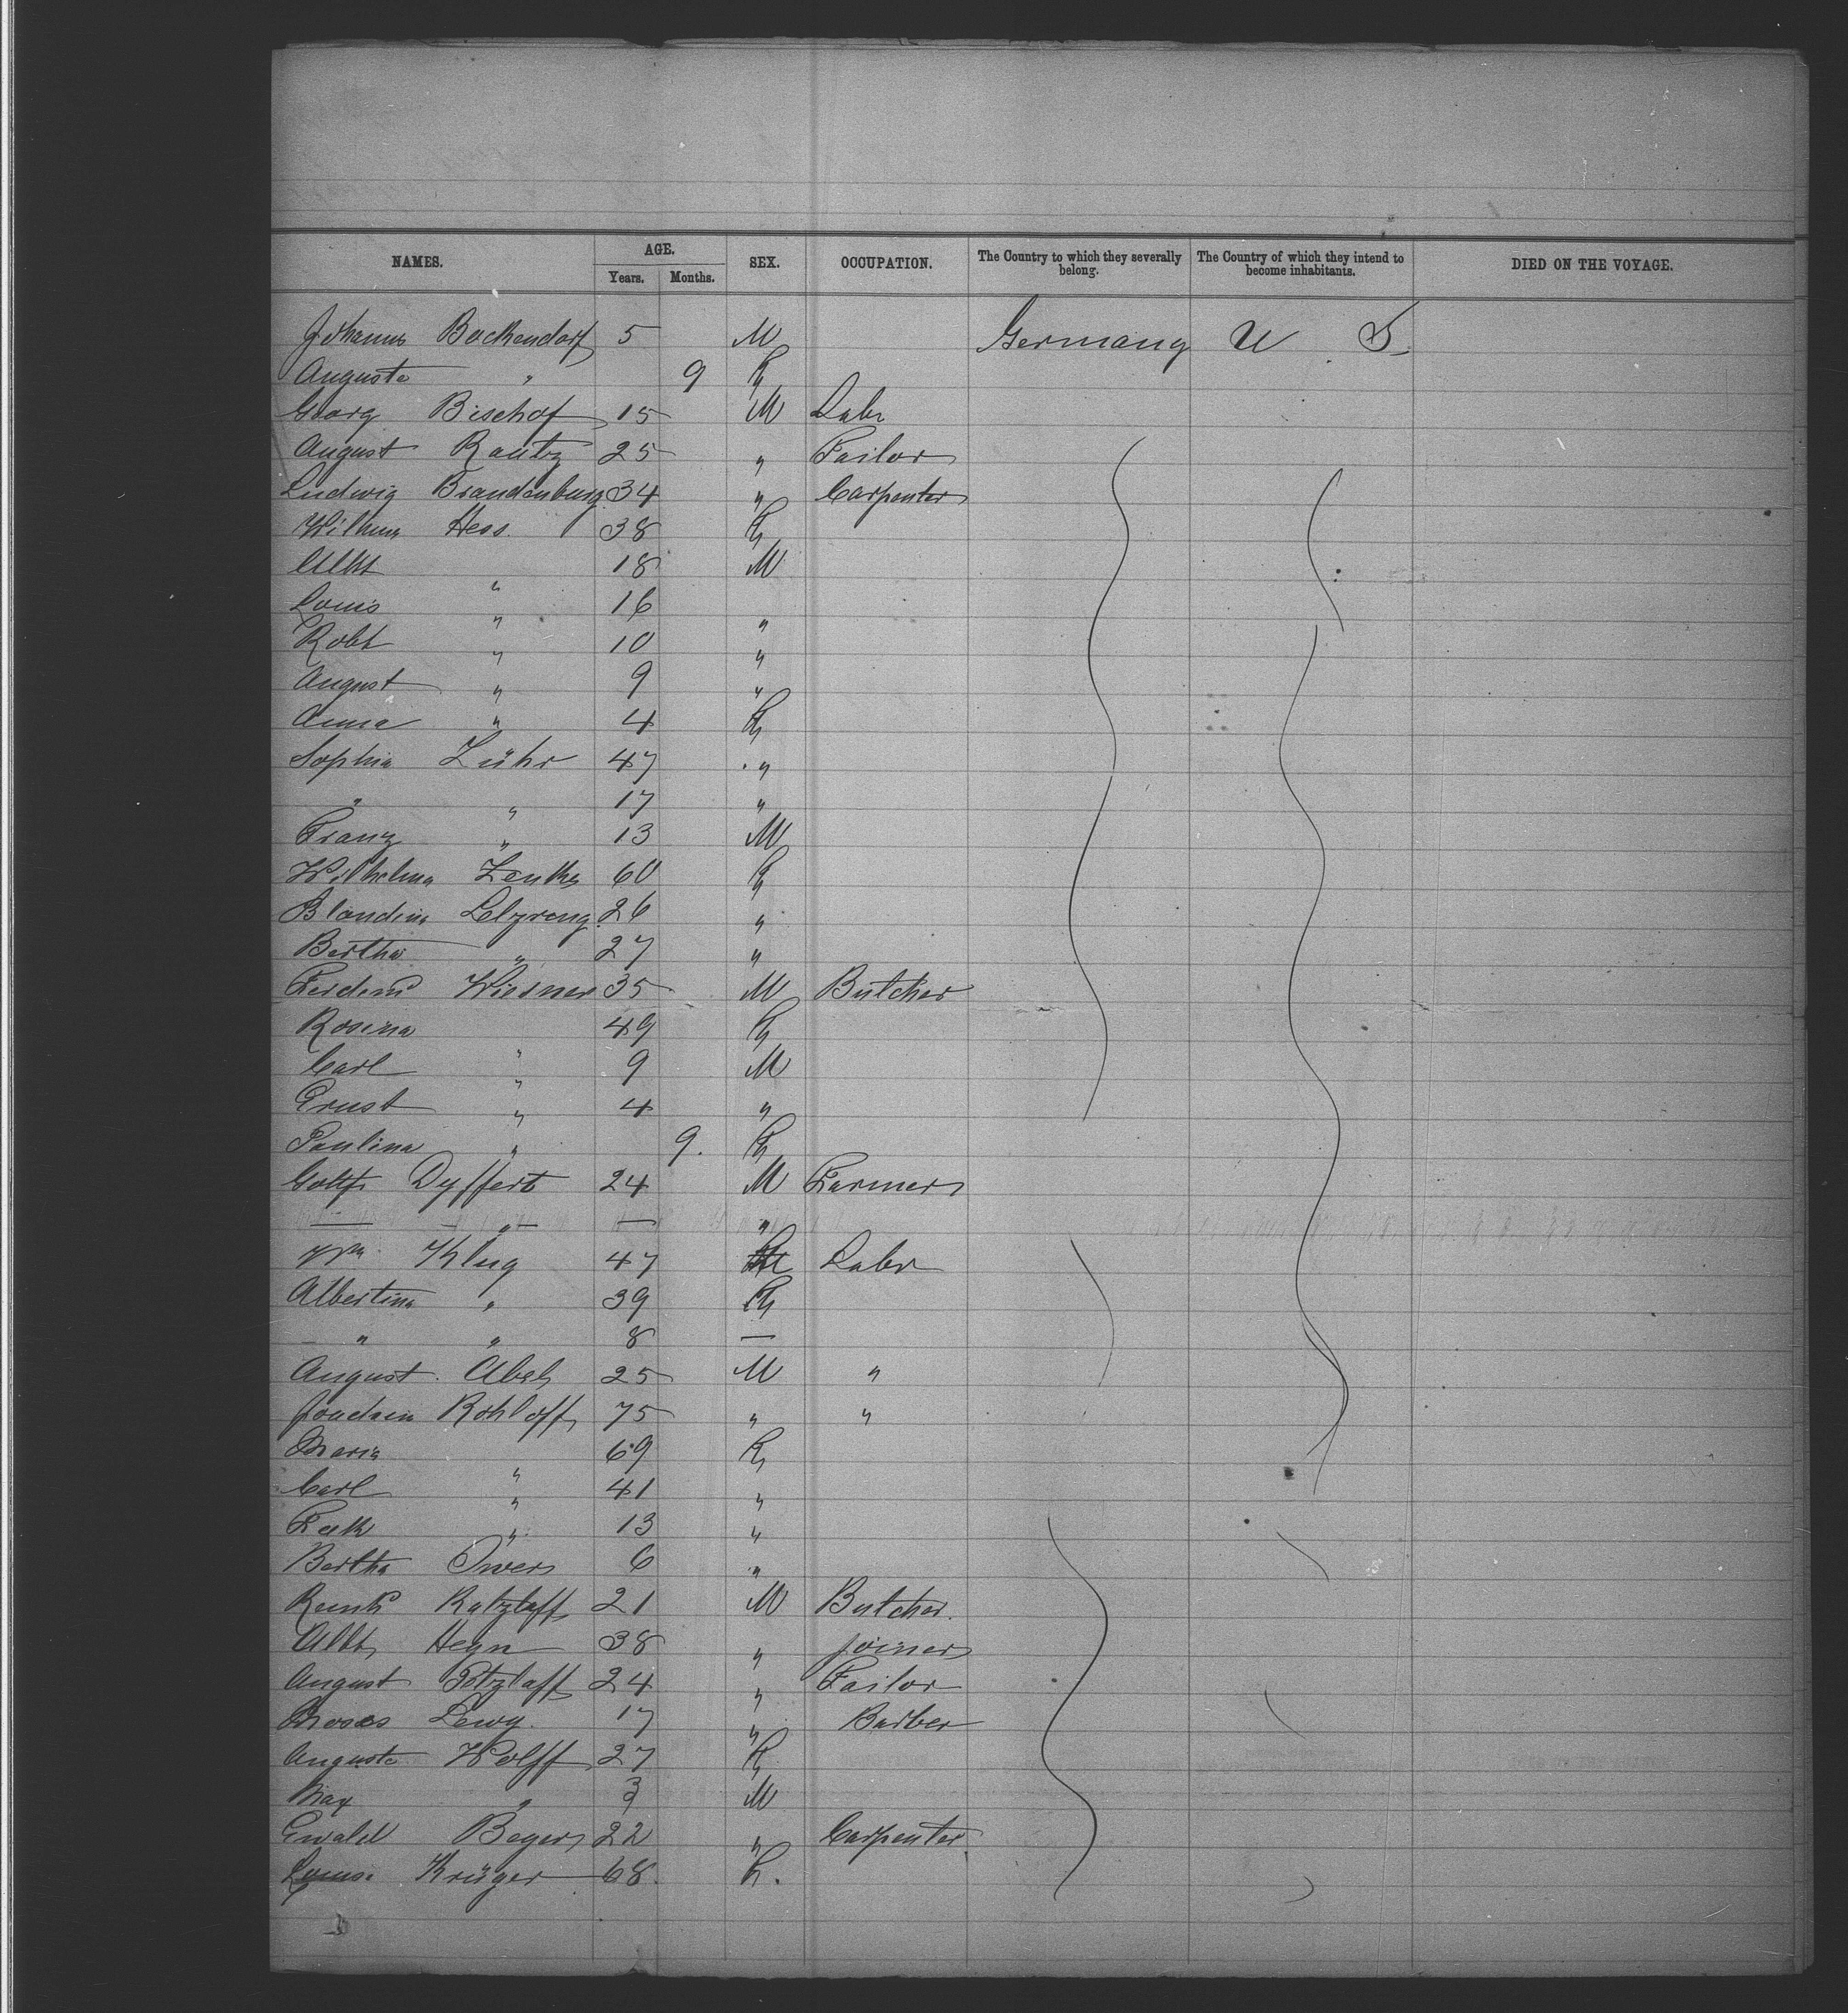 NAMES. AGE. SEX. OCCUPATION. The Country to which they severally belong. The Country of which they intend to become inhabitants. DIED ON THE VOYAGE.
Years. Months.
Johannes Bockendorf 5 M Germany U S.
Auguste " 9 F
Georg Bischof 15 M Labr
August Rautz 25 " Tailor
Ludwig Brandenburg 34 " Carpenter
Wilhma Hess. 38 F
Albt " 18 M
Louis " 16 "
Robt " 10 "
August " 9 "
Anna " 4 F
Sophia Lühr 47 "
" " 17 "
Franz " 13 M
Wilhelma 60 F
Blandina 26 "
Bertha " 27 "
Ferdind Wiesner 35 M Butcher
Rosina " 49 F
Carl " 9 M
Ernst " 4 "
Paulina " 9. F
Gottfr Dyffert 24 M Farmer
— — " — — "
Wm Klug 47 M Labr
Albertina " 39 F
" " 8 —
August Abel 25 M "
Rohloff 75 " "
Maria " 69 F
Carl " 41 "
" 13 "
Bertha Ewers 6 "
Ratzlaff 21 M Butcher.
Albt Heyn 38 " Joiner
August 24 " Tailor
Moses Lewy. 17 " Barber
Auguste Wolff 27 F
Max " 3 M
Ewald Beyer 22 " Carpenter
Louise Krüger 68. F.